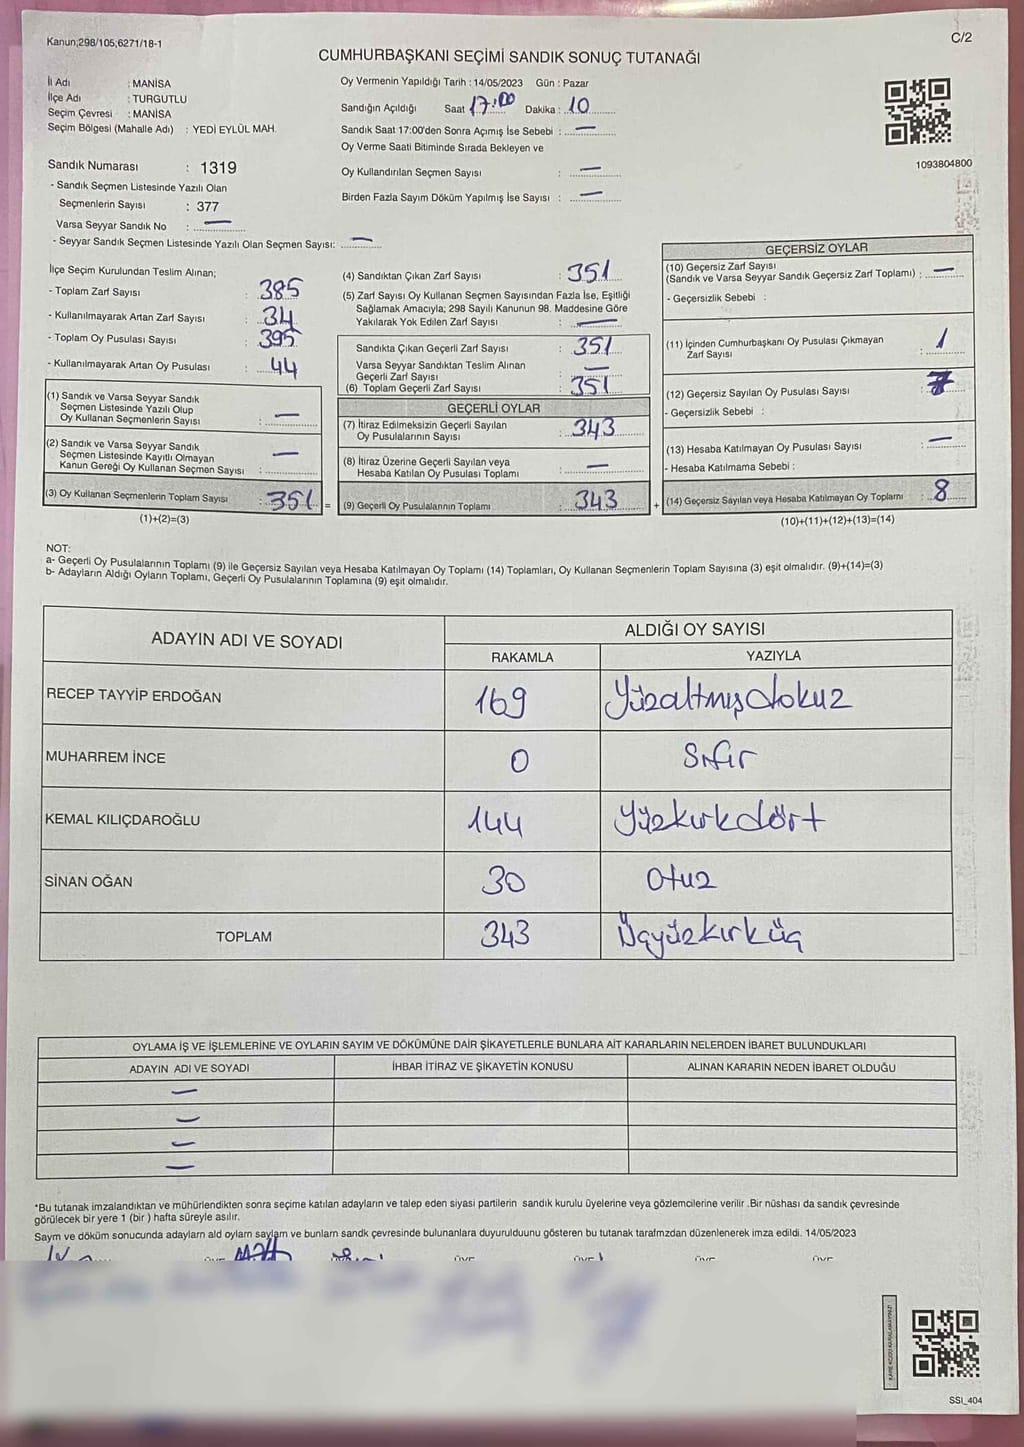 Kanun;298/105;6271/18-1
C/2
CUMHURBAŞKANI SEÇİMİ SANDIK SONUÇ TUTANAĞI
İl Adı : MANİSA
İlçe Adı : TURGUTLU
Seçim Çevresi : MANİSA
Seçim Bölgesi (Mahalle Adı) : YEDİ EYLÜL MAH.
Sandık Numarası : 1319
- Sandık Seçmen Listesinde Yazılı Olan
Seçmenlerin Sayısı : 377
Varsa Seyyar Sandık No : —
- Seyyar Sandık Seçmen Listesinde Yazılı Olan Seçmen Sayısı: —
Oy Vermenin Yapıldığı Tarih : 14/05/2023 Gün : Pazar
Sandığın Açıldığı Saat 17:00 Dakika : 10
Sandık Saat 17:00'den Sonra Açımış İse Sebebi : —
Oy Verme Saati Bitiminde Sırada Bekleyen ve
Oy Kullandırılan Seçmen Sayısı : —
Birden Fazla Sayım Döküm Yapılmış İse Sayısı : —
1093804800
İlçe Seçim Kurulundan Teslim Alınan;
- Toplam Zarf Sayısı : 385
- Kullanılmayarak Artan Zarf Sayısı : 34
- Toplam Oy Pusulası Sayısı : 395
- Kullanılmayarak Artan Oy Pusulası : 44
(1) Sandık ve Varsa Seyyar Sandık
Seçmen Listesinde Yazılı Olup
Oy Kullanan Seçmenlerin Sayısı : —
(2) Sandık ve Varsa Seyyar Sandık
Seçmen Listesinde Kayıtlı Olmayan
Kanun Gereği Oy Kullanan Seçmen Sayısı : —
(3) Oy Kullanan Seçmenlerin Toplam Sayısı : 351 =
(1)+(2)=(3)
(4) Sandıktan Çıkan Zarf Sayısı : 351
(5) Zarf Sayısı Oy Kullanan Seçmen Sayısından Fazla İse, Eşitliği
Sağlamak Amacıyla; 298 Sayılı Kanunun 98. Maddesine Göre
Yakılarak Yok Edilen Zarf Sayısı : —
Sandıkta Çıkan Geçerli Zarf Sayısı : 351
Varsa Seyyar Sandıktan Teslim Alınan
Geçerli Zarf Sayısı : —
(6) Toplam Geçerli Zarf Sayısı : 351
GEÇERLİ OYLAR
(7) İtiraz Edilmeksizin Geçerli Sayılan
Oy Pusulalarının Sayısı : 343
(8) İtiraz Üzerine Geçerli Sayılan veya
Hesaba Katılan Oy Pusulası Toplamı : —
(9) Geçerli Oy Pusulalarının Toplamı : 343 +
GEÇERSİZ OYLAR
(10) Geçersiz Zarf Sayısı
(Sandık ve Varsa Seyyar Sandık Geçersiz Zarf Toplamı) : —
- Geçersizlik Sebebi :
(11) İçinden Cumhurbaşkanı Oy Pusulası Çıkmayan
Zarf Sayısı : 1
(12) Geçersiz Sayılan Oy Pusulası Sayısı : 7
- Geçersizlik Sebebi :
(13) Hesaba Katılmayan Oy Pusulası Sayısı : —
- Hesaba Katılmama Sebebi :
(14) Geçersiz Sayılan veya Hesaba Katılmayan Oy Toplamı : 8
(10)+(11)+(12)+(13)=(14)
NOT:
a- Geçerli Oy Pusulalarının Toplamı (9) ile Geçersiz Sayılan veya Hesaba Katılmayan Oy Toplamı (14) Toplamları, Oy Kullanan Seçmenlerin Toplam Sayısına (3) eşit olmalıdır. (9)+(14)=(3)
b- Adayların Aldığı Oyların Toplamı, Geçerli Oy Pusulalarının Toplamına (9) eşit olmalıdır.
ADAYIN ADI VE SOYADI
ALDIĞI OY SAYISI
RAKAMLA YAZIYLA
RECEP TAYYİP ERDOĞAN 169 Yüzaltmışdokuz
MUHARREM İNCE 0 Sıfır
KEMAL KILIÇDAROĞLU 144 Yüzkırkdört
SİNAN OĞAN 30 Otuz
TOPLAM 343 Üçyüzkırküç
OYLAMA İŞ VE İŞLEMLERİNE VE OYLARIN SAYIM VE DÖKÜMÜNE DAİR ŞİKAYETLERLE BUNLARA AİT KARARLARIN NELERDEN İBARET BULUNDUKLARI
ADAYIN ADI VE SOYADI İHBAR İTİRAZ VE ŞİKAYETİN KONUSU ALINAN KARARIN NEDEN İBARET OLDUĞU
—
—
—
—
*Bu tutanak imzalandıktan ve mühürlendikten sonra seçime katılan adayların ve talep eden siyasi partilerin sandık kurulu üyelerine veya gözlemcilerine verilir .Bir nüshası da sandık çevresinde
görülecek bir yere 1 (bir ) hafta süreyle asılır.
Saym ve döküm sonucunda adaylarn ald oylarn saylarn ve bunlarn sandk çevresinde bulunanlara duyurulduunu gösteren bu tutanak tarafmzdan düzenlenerek imza edildi. 14/05/2023
SSI_404